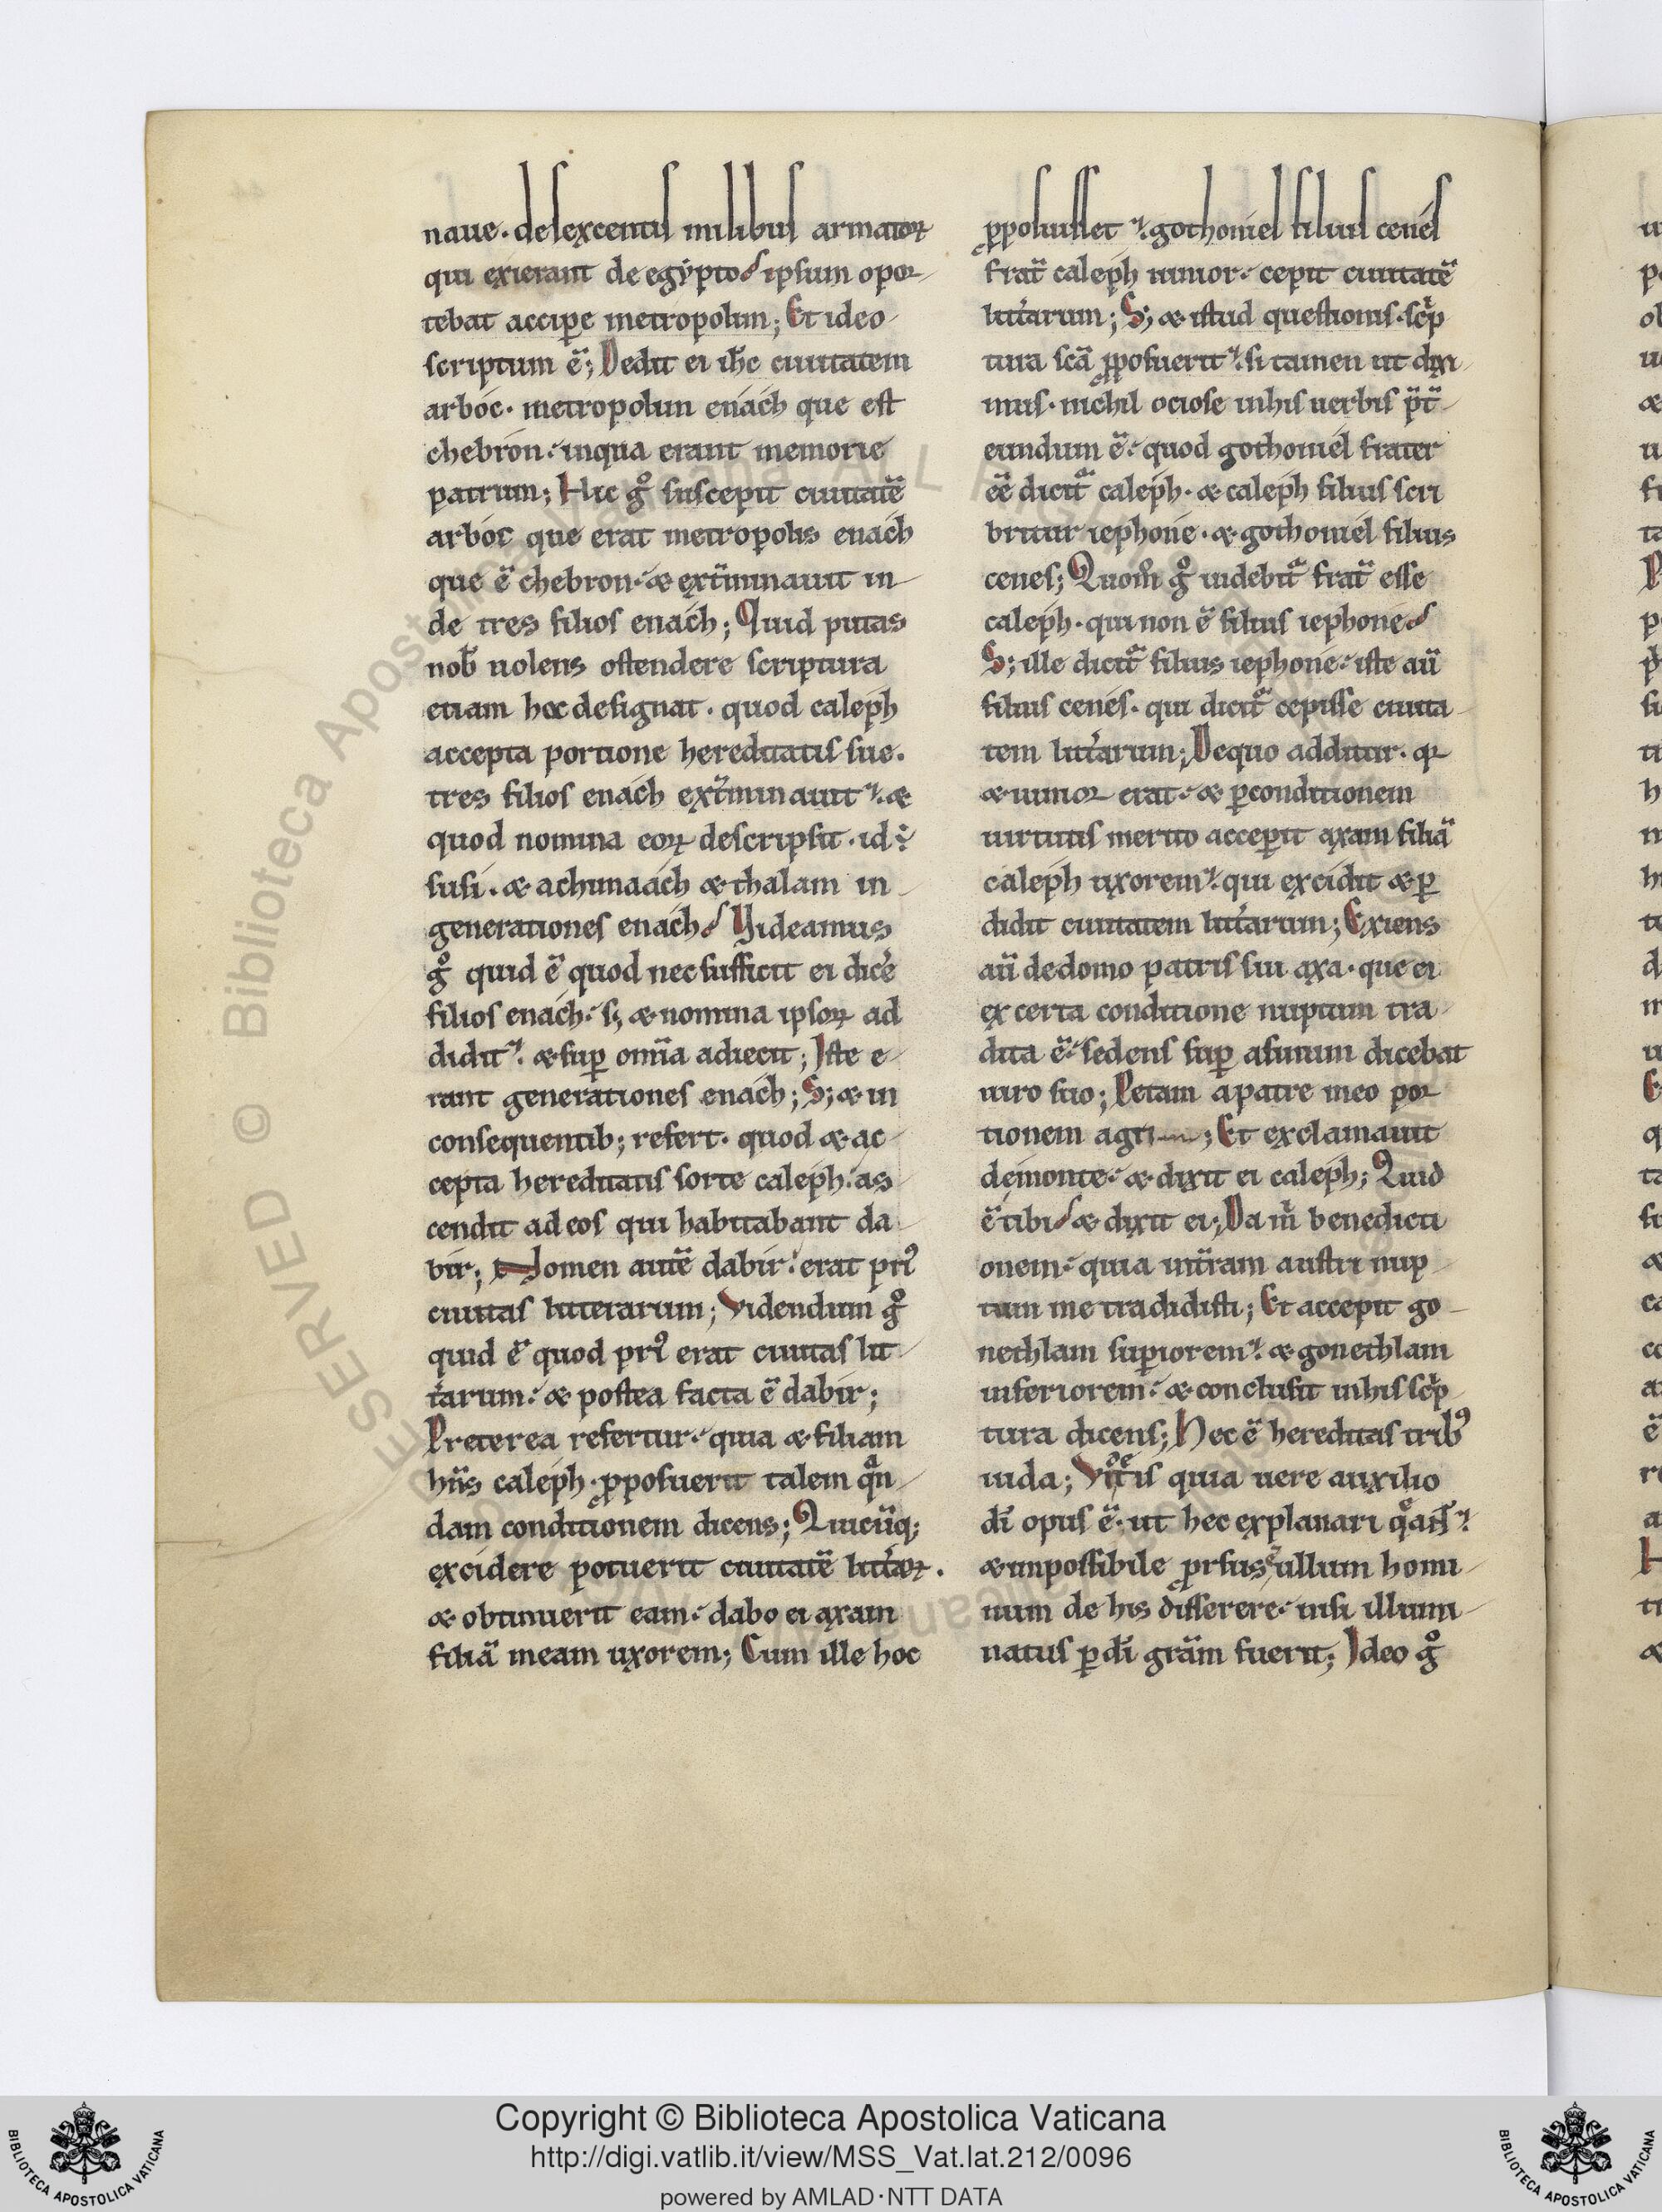 naue. de sexcentis milibus armatoꝝ
qui exierant de egẏpto ipsum opor
tebat accipe metropolim; Et ideo
scriptum ē; Dedit ei ih̄c ciuitatem
arbóc. metropolim enách que est
chebrón. in qua erant memorie
patrum; Hic gͦ suscepit ciuitatē
arbóc que erat metropolis enách
que ē chebron. & ext̄minauit in
de tres filios enách; Quid putas
nob̄ uolens ostendere scriptura
etiam hoc designat. quod caleph
accepta portione hereditatis sue.
tres filios enách ext̄minauit. &
quod nomina eoꝝ descripsit. id ÷
susi. & achimaách & thalam in
generationes enách Videamus
gͦ quid ē quod nec sufficit ei dicē
filios enách. sꝫ & nomina ipsoꝝ ad
didit. & sup̲ om̄ia adiecit; Iste e
rant generationes enách; Sꝫ & in
consequentibꝫ refert. quod & ac
cepta hereditatis sorte caleph. as
cendit ad eos qui habitabant da
bir; Nomen autē dabir. erat priꝰ
ciuitas litterarum; Videndum gͦ
quid ē quod priꝰ erat ciuitas lit
t̄arum. & postea facta ē dabir;
Preterea refertur. quia & filiam
hn̄s caleph. ꝓposuerit talem qͣn
dam conditionem dicens; Quicūqꝫ
excidere potuerit ciuitatē litt̄aꝝ.
& obtinuerit eam. dabo ei axam
filiā meam uxorem; Cum ille hoc
ꝓposuisset. gothoniel filius cenél
frat̄ caleph iunior. cepit ciuitatē
litt̄arum; Sꝫ & istud questionis. sc̄p
tura sc̄a ꝓposuerit. si tamen ut dixi
mus. nichil ociose in his uerbis p̄t̄
eundum ē. quod gothoniél frater
ēē dicit᷑ caleph. & caleph filius scri
britur iephone. & gothoniél filius
cenes; Quom̄ gͦ uidebit᷑ frat̄ esse
caleph. qui non ē filius iephone
Sꝫ ille dicit᷑ filius iephone. iste aū
filius cenés. qui dicit᷑ cepisse ciuita
tem litt̄arum; De quo additur. qꝛ
& iunior erat. & ꝑ conditionem
uirtutis merito acceꝑit axam filiā
caleph uxorem. qui excidit & ꝑ
didit ciuitatem litt̄arum; Exiens
aū de domo patris sui axa. que ei
ex certa conditione nuptum tra
dita ē. sedens suꝑ asinum dicebat
uiro suo; Petam a patre meo por
tionem agri; Et exclamauit
de monte. & dixit ei caleph; Quid
ē tibi & dixit ei; Da m̄ benedicti
onem. quia in t̄ram austri nup
tum me tradidisti; Et accepit go
nethlam suꝑiorem. & gonethlam
inferiorem. & conclusit in his sc̄p
tura dicens; Hec ē hereditas tribꝰ
iuda; quia uere auxilio
dī opus ē. ut hec explanari
& impossibile ꝓrsus ē ullum homi
num de his differere. nisi illumi
natus ꝑ dī grām fuerit; Ideo gͦ
Copyright © Biblioteca Apostolica Vaticana
http://digi.vatlib.it/view/MSS_Vat.lat.212/0096
powered by AMLAD·NTT DATA
BIBLIOTECA APOSTOLICA VATICANA
BIBLIOTECA APOSTOLICA VATICANA